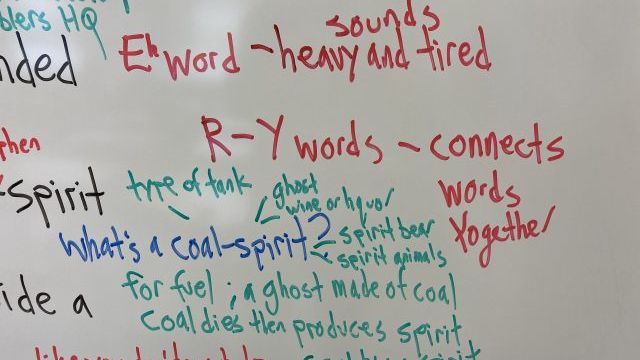 blers HQ
sounds
nded Eh word - heavy and tired
phen
R-Y words - connects
words
together
spirit
type of tank
ghost
wine or liquor
What's a coal-spirit?
spirit bear
spirit animals
ide a
for fuel; a ghost made of coal
Coal dies then produces spirit